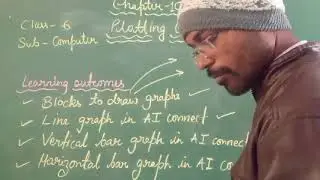 Chapter-10
Class - 6
Sub - Computer
Plotting
Learning outcomes
✓ Blocks to draw graphs
✓ Line graph in AI connect ✓
✓ Vertical bar graph in AI connect
✓ Horizontal bar graph in AI